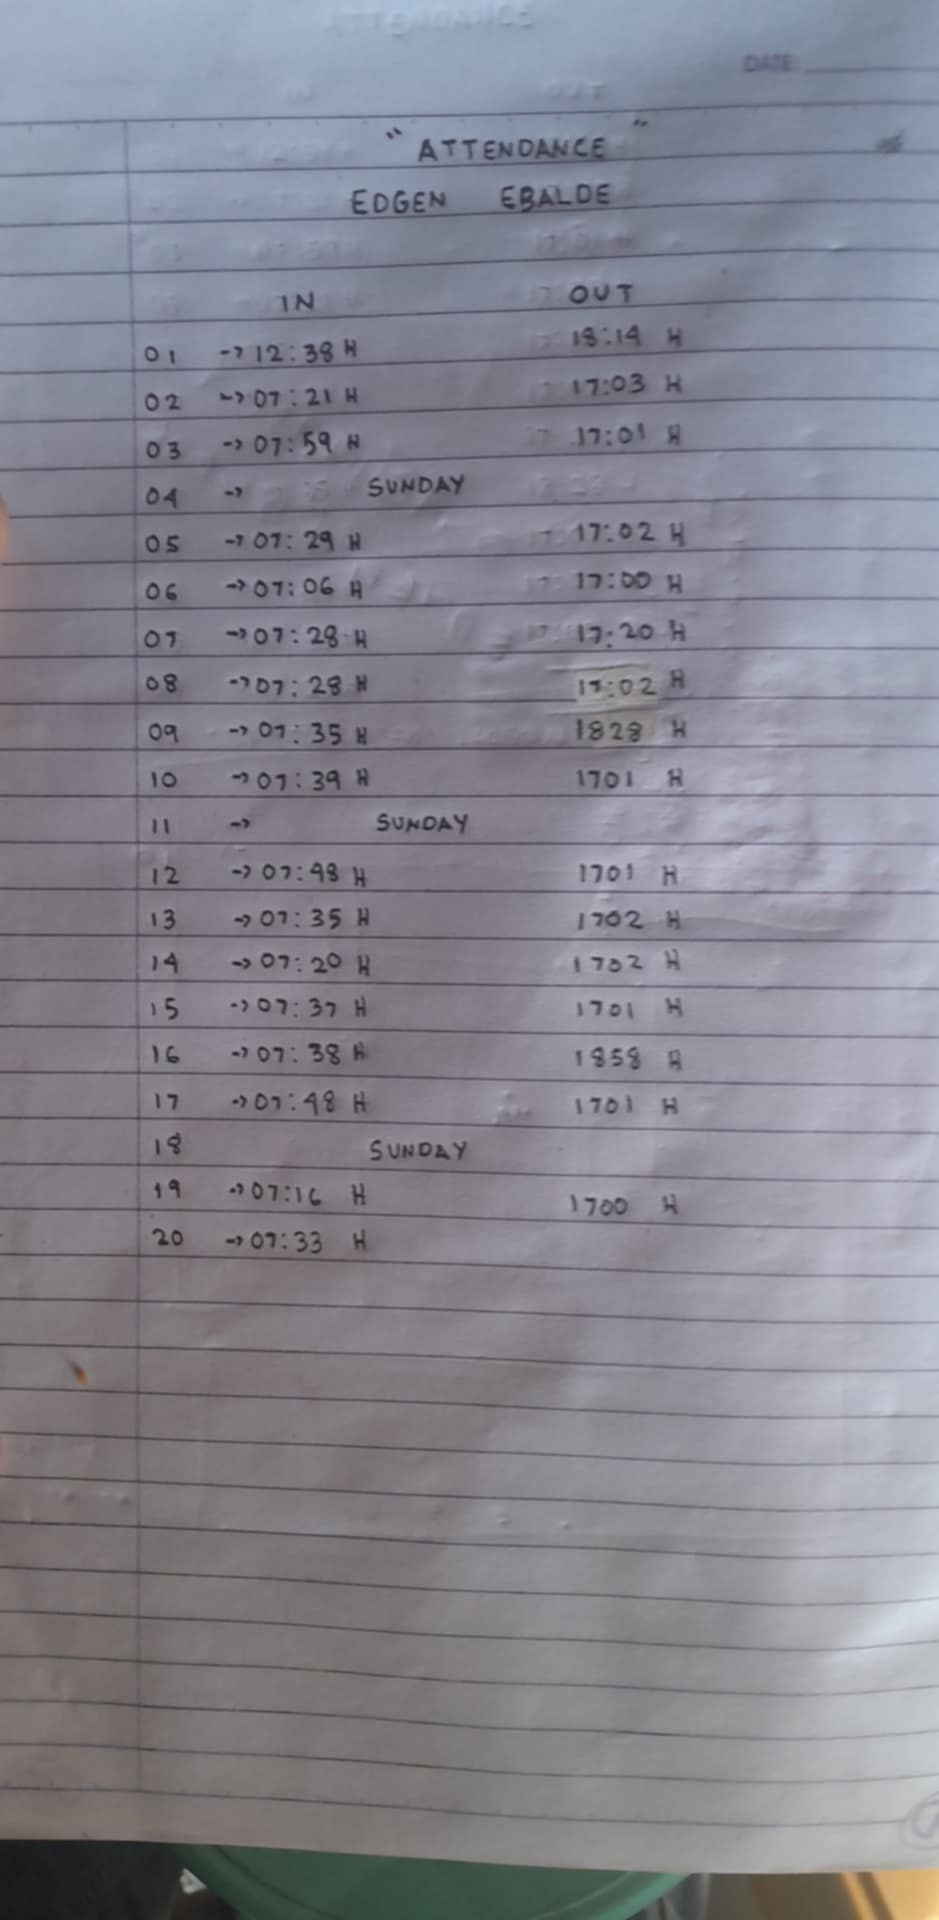 DATE:
" ATTENDANCE "
EDGEN EBALDE
IN OUT
01 -> 12:38 H 18:14 H
02 -> 07:21 H 17:03 H
03 -> 07:59 H 17:01 H
04 -> SUNDAY
05 -> 07:29 H 17:02 H
06 -> 07:06 H 17:00 H
07 -> 07:28 H 17:20 H
08 -> 07:28 H 17:02 H
09 -> 07:35 H 1828 H
10 -> 07:39 H 1701 H
11 -> SUNDAY
12 -> 07:48 H 1701 H
13 -> 07:35 H 1702 H
14 -> 07:20 H 1702 H
15 -> 07:37 H 1701 H
16 -> 07:38 H 1858 H
17 -> 07:48 H 1701 H
18 SUNDAY
19 -> 07:16 H 1700 H
20 -> 07:33 H